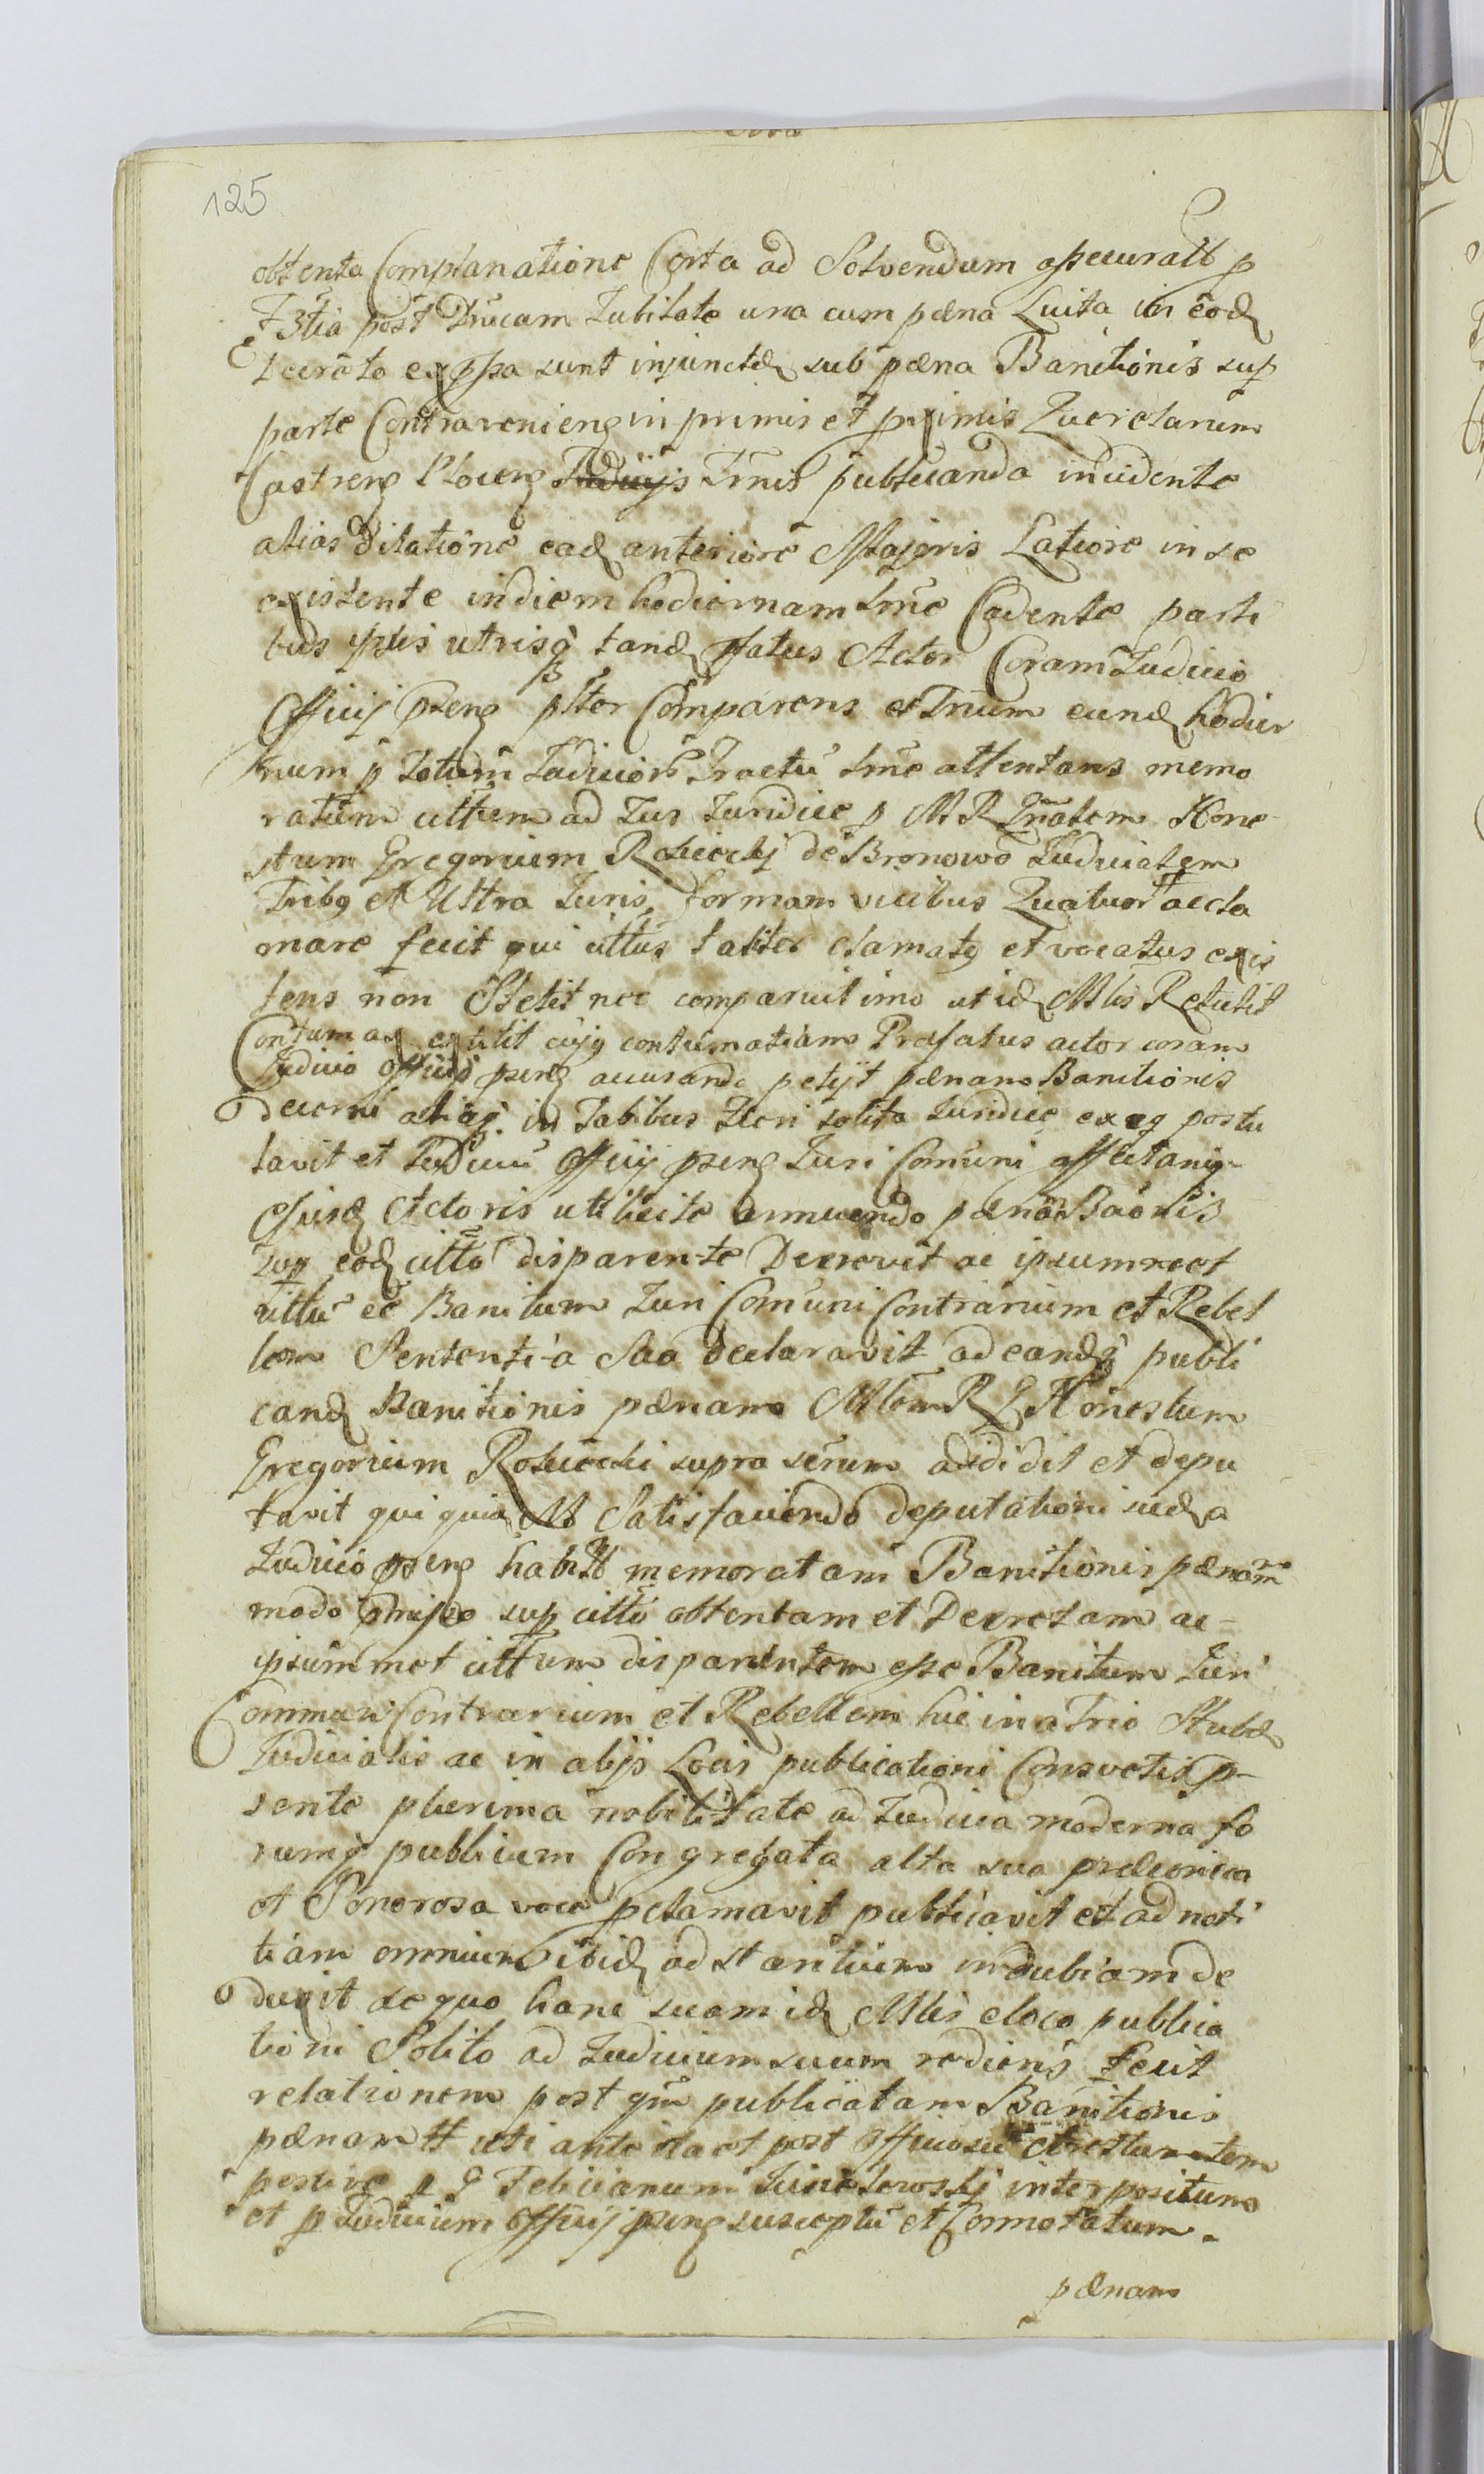 125
obtenta Complanatione Certa ad Solvendum assecuratt p
post Dnicam Jubilate una cum pæna Luita in eod
Decreto exppsa sunt injuncta sub pæna Banitionis sup
parte Contravenien in primis et pximis Querelarum
Castren Plocen Trnis publicanda incidente
alias dilatione ead anteriore Majoris Latiore in se
existente in diem hodiernam trne Cadente parti
bus ipsis utrisq tand pfatus Actor Coram Judicio
Officij psen psltr Comparens et Trnum eund hodier
num p totum Judicior Tractu trne attentans memo
ratum citatum ad Jus Juridice p M R Gnalem Hone
stum Gregorium Rosciecki de Bronowo Judicialem
Tribq et Ultra Juris formam vicibus Quatuor accla
mare fecit qui cittus taliter clamatq et vocatus exis
tens non Stetit nec comparuit imo ut id Mlis Retulit
Contumax extitit cujq contumatiam Præfatus actor coram
Judicio Officij psen accusando petijt pænam Banitionis
decerni aliaq in talibus fieri solita Juridice ex eq postu
lavit et Judiciu Officij psen Juri Comuni affectaniq
Ejusd Actoris uti licite annuendo pæna Baonis
sup eod citto disparente Decrevit ac ipsummet
cittu ee Banitum Juri Comuni Contrarium et Rebel
lem Sententia Sua declaravit ad eandq publi
cand Banitionis pænam Mlem R G Honestum
Gregorium Rosciecki supra scrum addidit et depu
tavit qui quid M Satisfaciendo deputationi sed a
Judicio psen habitt memoratam Banitionis pænam
modo pmisso sup citto obtentam et Decretam ac
ipsummet cittum disparentem esse Banitum Juri
Communi Contrarium et Rebellem hic in atrio Stubæ
Judicialis ac in alijs Locis publicationi Consvetis p
sente plurima nobilitate ad Judicia moderna fo
rumq publicum Congregata alta sua præconica
et Sonorosa voce pclamavit publicavit et ad noti
tiam omnium ibid adstantium indubiam de
duxit de quo hanc suam id Mlis eloco publica
tioni Solito ad Judicium suum rediens fecit
relationem post qm publicatam Banitionis
pænam tt uti ante ita et post Officiosu Arestum tem
pestive p G Felicianum interpositum
et p Judicium Officij psen susceptu et Connotatum
pænam